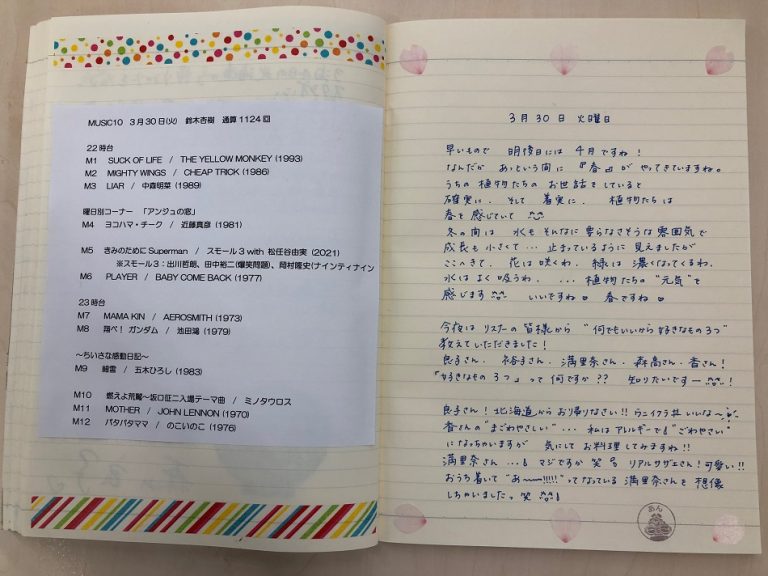 MUSIC10 3月30日(火) 鈴木杏樹 通算1124回
22時台
M1 SUCK OF LIFE / THE YELLOW MONKEY (1993)
M2 MIGHTY WINGS / CHEAP TRICK (1986)
M3 LIAR / 中森明菜 (1989)
曜日別コーナー 「アンジュの窓」
M4 ヨコハマ・チーク / 近藤真彦 (1981)
M5 きみのためにSuperman / スモール3 with 松任谷由実 (2021)
※スモール3:出川哲朗、田中裕二(爆笑問題)、岡村隆史(ナインティナイン
M6 PLAYER / BABY COME BACK (1977)
23時台
M7 MAMA KIN / AEROSMITH (1973)
M8 翔べ! ガンダム / 池田鴻 (1979)
～ちいさな感動日記～
M9 細雪 / 五木ひろし (1983)
M10 燃えよ荒鷲～坂口征二入場テーマ曲 / ミノタウロス
M11 MOTHER / JOHN LENNON (1970)
M12 パタパタママ / のこいのこ (1976)
3月30日 火曜日
早いもので 明後日には 4月ですね!
なんだか あっという間に 『春』が やってきていますね。
うちの 植物たちの お世話をしていると
確実に、そして 着実に、 植物たちは
春を感じていて
冬の間は 水も そんなに 要らなさそうな 雰囲気で
成長も 小さくて… 止まっているように 見えましたが
ここへきて、花は咲くわ、緑は 濃くなってくるわ、
水は よく吸うわ、 … 植物たちの "元気"を
感じます いいですね 春ですね
今夜は リスナーの 皆様から "何でもいいから 好きなもの3つ"
教えていただきました!
良子さん、裕子さん、満里奈さん、森高さん、香さん!
『好きなもの 3つ』って 何ですか?? 知りたいですー!
良子さん! 北海道から お帰りなさい!! ウニイクラ丼 いいな～
香さんの "まごわやさしい"… 私は アレルギーで "ごわやさい"
になっちゃいますが 気にして お料理 してみますね!!
満里奈さん…! マジですか 笑 リアルサザエさん! 可愛い!!
おうち着いて "あーー!!!!!" ってなっている 満里奈さんを 想像
しちゃいました 笑
あん